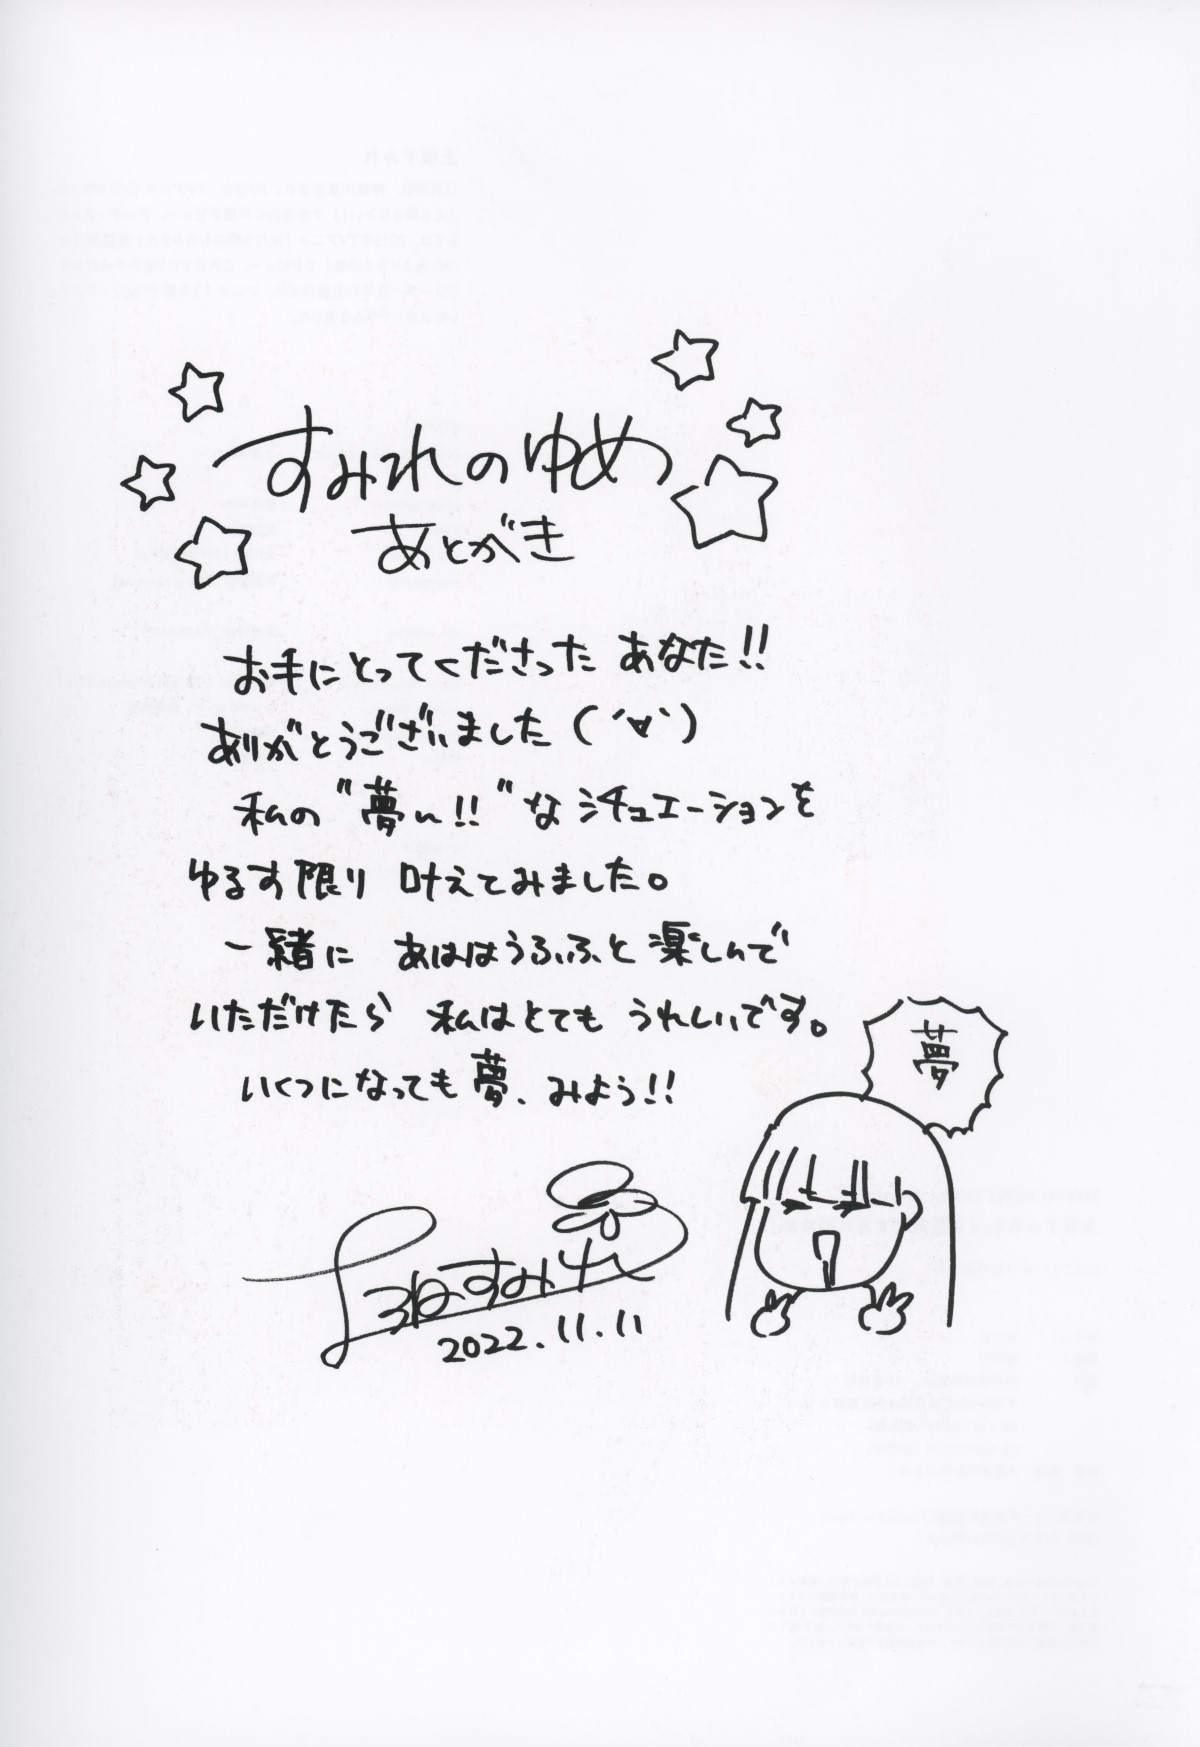 すみれのゆめ
あとがき
お手にとってくださった あなた!!
ありがとうございました (´∀`)
私の"夢ん!!"な シチュエーションを
ゆるす限り 叶えてみました。
一緒に あははうふふと楽しんで
いただけたら 私はとても うれしいです。
いくつになっても夢、みよう!!
夢
すみれ
2022.11.11